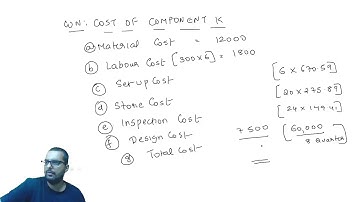 WN: COST OF COMPONENT K
(a) Material Cost = 12000
(b) Labour Cost [300x6] = 1800
(c) Setup Cost [6 x 670.59]
(d) Store Cost [20 x 275.89]
(e) Inspection Cost [24 x 149.41]
(f) Design Cost 7500 [60,000 / 8 Quarter]
(g) Total Cost